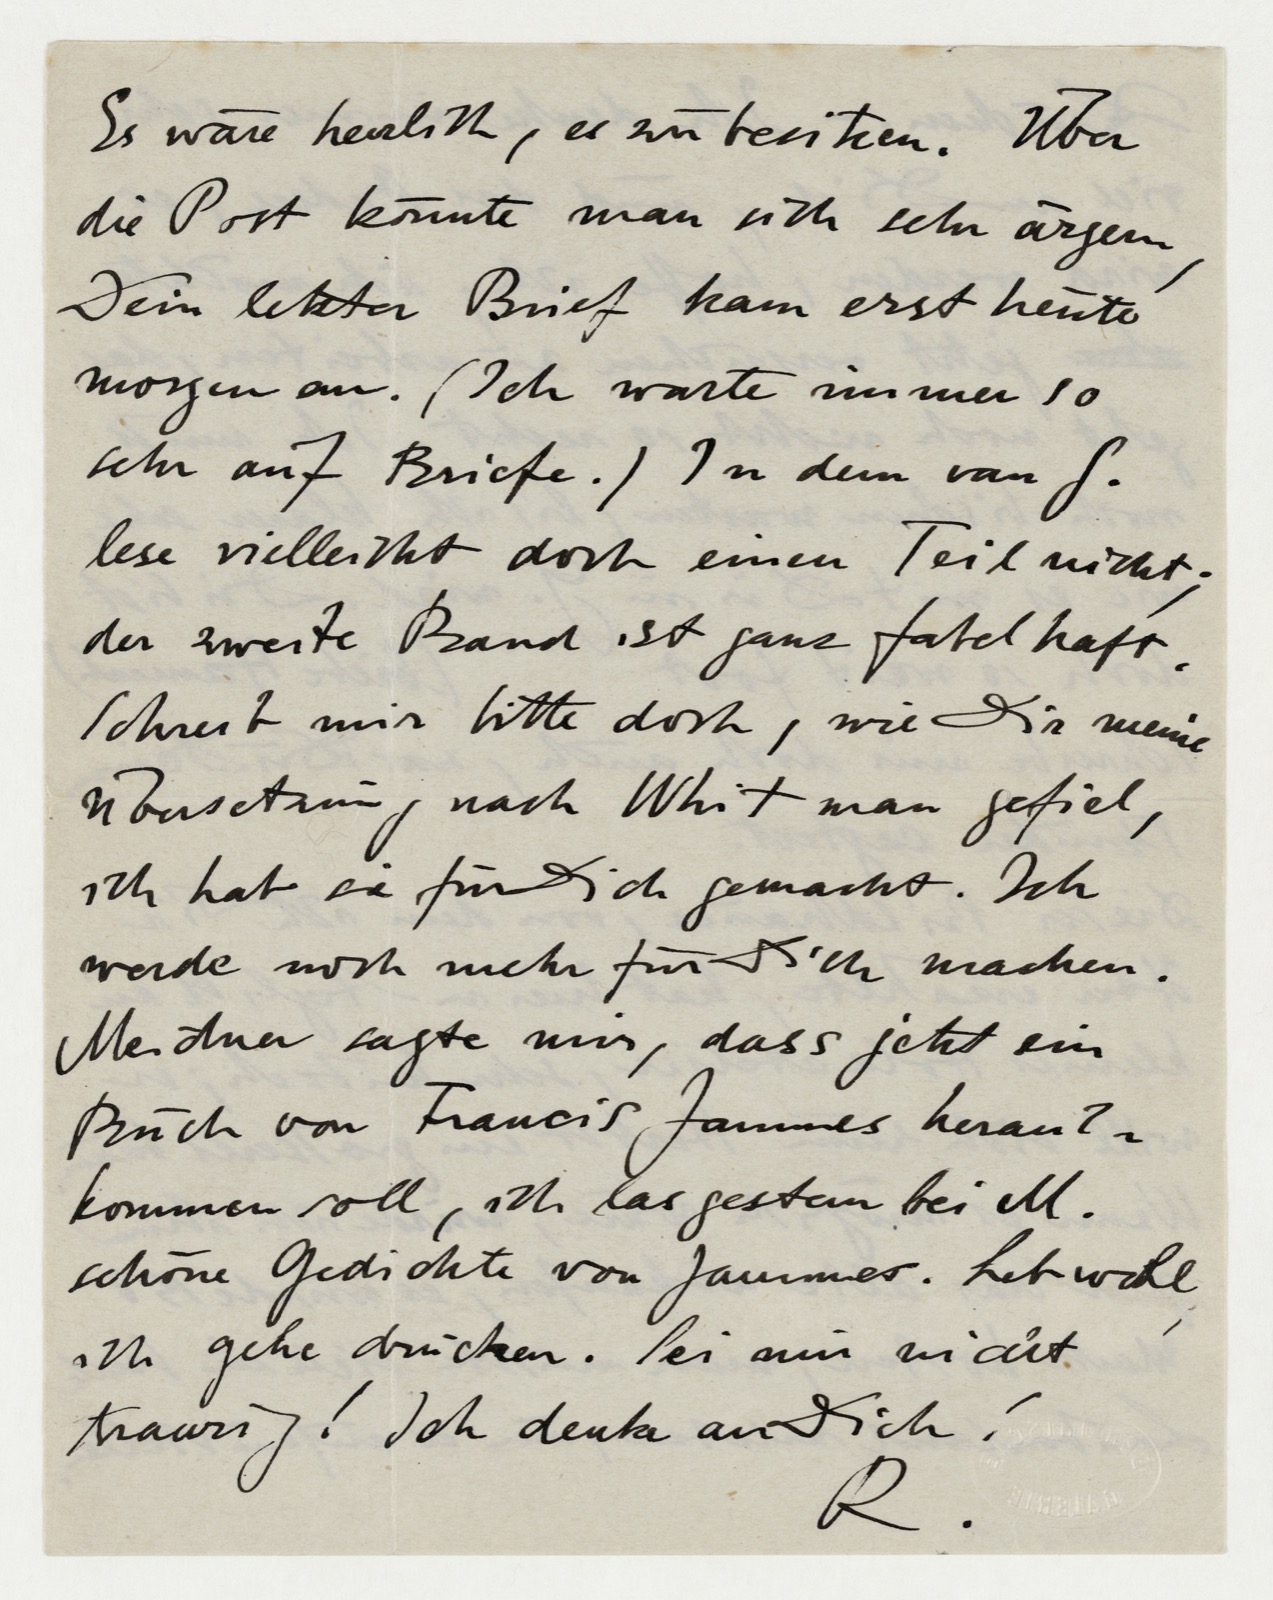 Es wäre herrlich, es zu besitzen. Über
die Post könnte man sich sehr ärgern,
Dein letzter Brief kam erst heute
morgen an. (Ich warte immer so
sehr auf Briefe.) In dem van G.
lese vielleicht doch einen Teil nicht;
der zweite Band ist ganz fabelhaft.
Schreib mir bitte doch, wie Dir meine
Übersetzung nach Whitman gefiel,
ich hab sie für Dich gemacht. Ich
werde noch mehr für Dich machen.
Meidner sagte mir, dass jetzt ein
Buch von Francis Jammes heraus-
kommen soll, ich las gestern bei M.
schöne Gedichte von Jammes. Leb wohl,
ich gehe drucken. Sei mir nicht
traurig! Ich denke an Dich!
R.